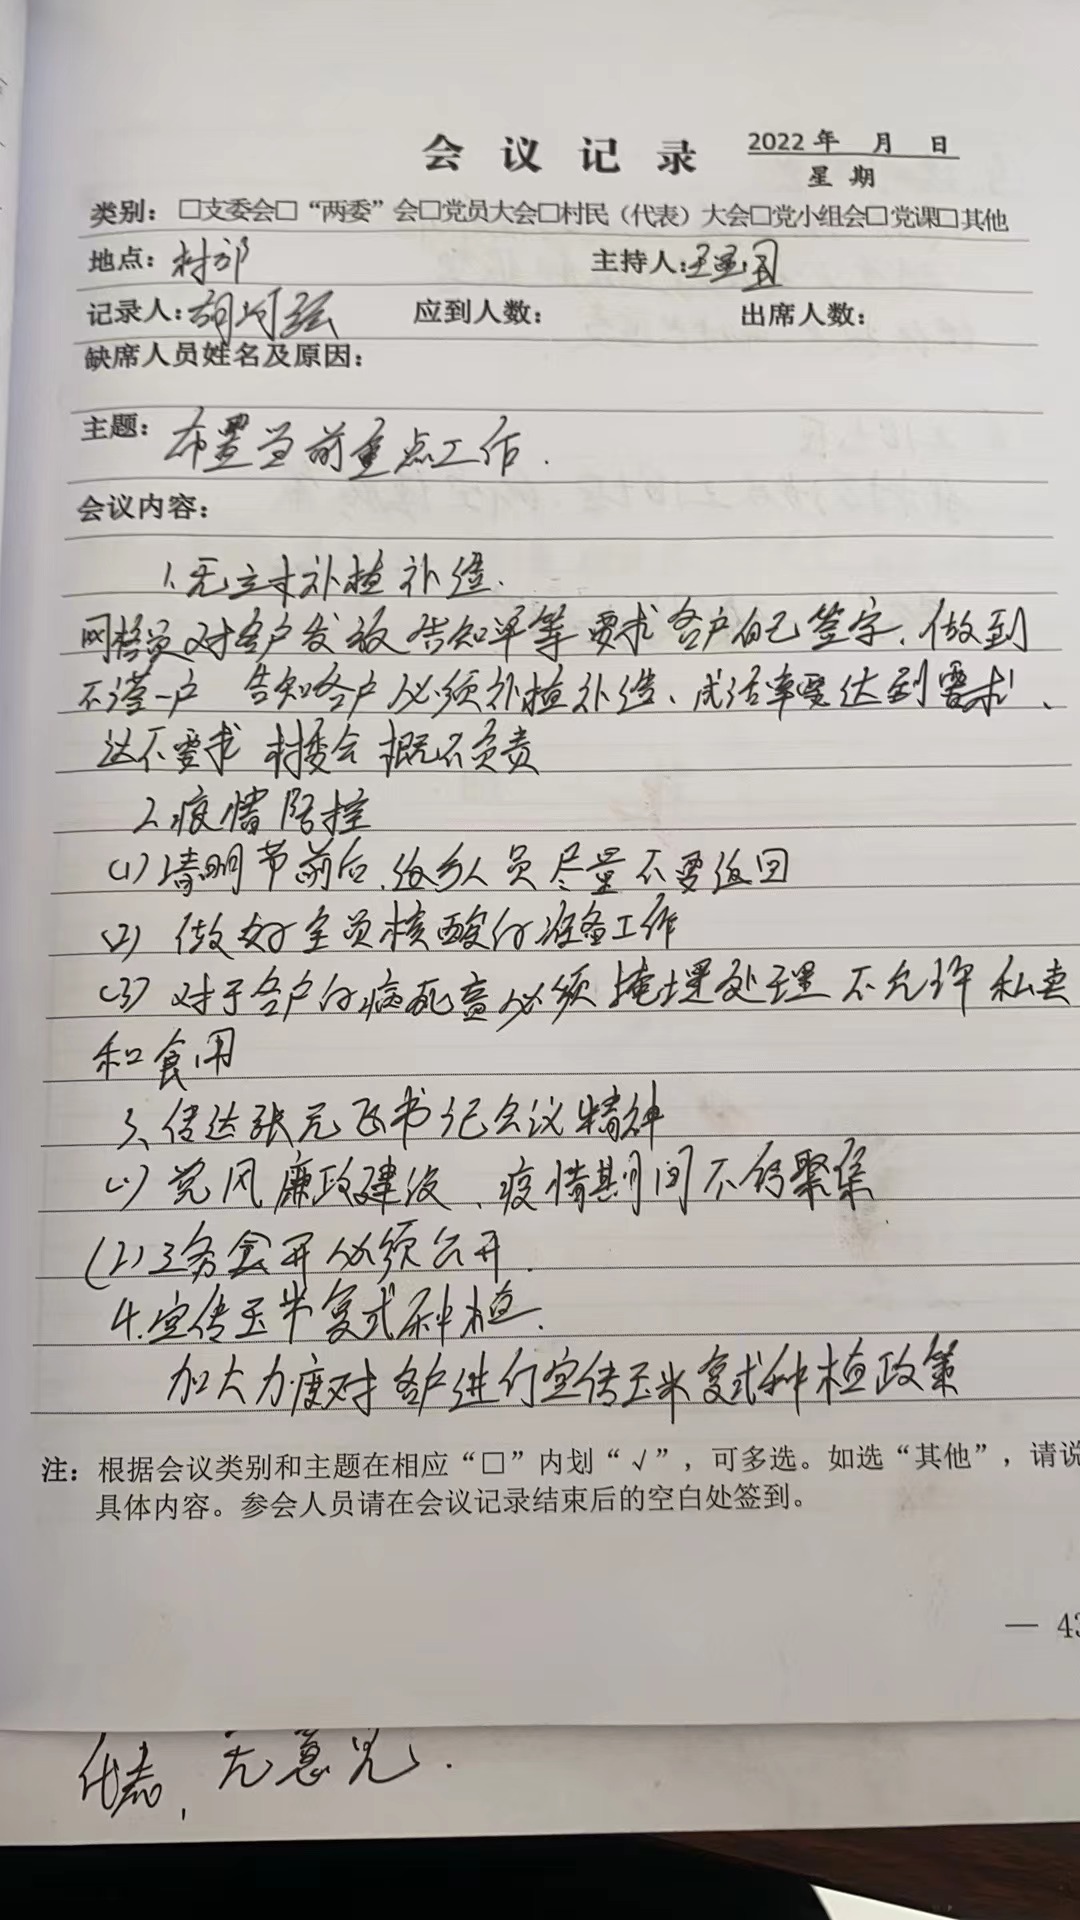 会议记录 2022年 月 日
星 期
类别：□支委会□“两委”会□党员大会□村民（代表）大会□党小组会□党课□其他
地点：村部 主持人：
记录人：胡 应到人数： 出席人数：
缺席人员姓名及原因：
主题：布置当前重点工作.
会议内容：
1.无立木补植补造.
网格员对各户发放告知单等要求各户自己签字、做到
不漏一户 告知各户必须补植补造、成活率要达到要求、
达不要求 村委会概不负责
2.疫情防控
(1)清明节前后、返乡人员尽量不要返回
(2) 做好全员核酸的准备工作
(3) 对于各户的病死畜必须掩埋处理 不允许私卖
和食用
3、传达张元飞书记会议精神
(1)党风廉政建设、疫情期间不能聚集
(2)三务公开必须公开.
4.宣传玉米复式种植.
加大力度对各户进行宣传玉米复式种植政策
注：根据会议类别和主题在相应“□”内划“√”，可多选。如选“其他”，请说
具体内容。参会人员请在会议记录结束后的空白处签到。
— 43
代表，无意见.